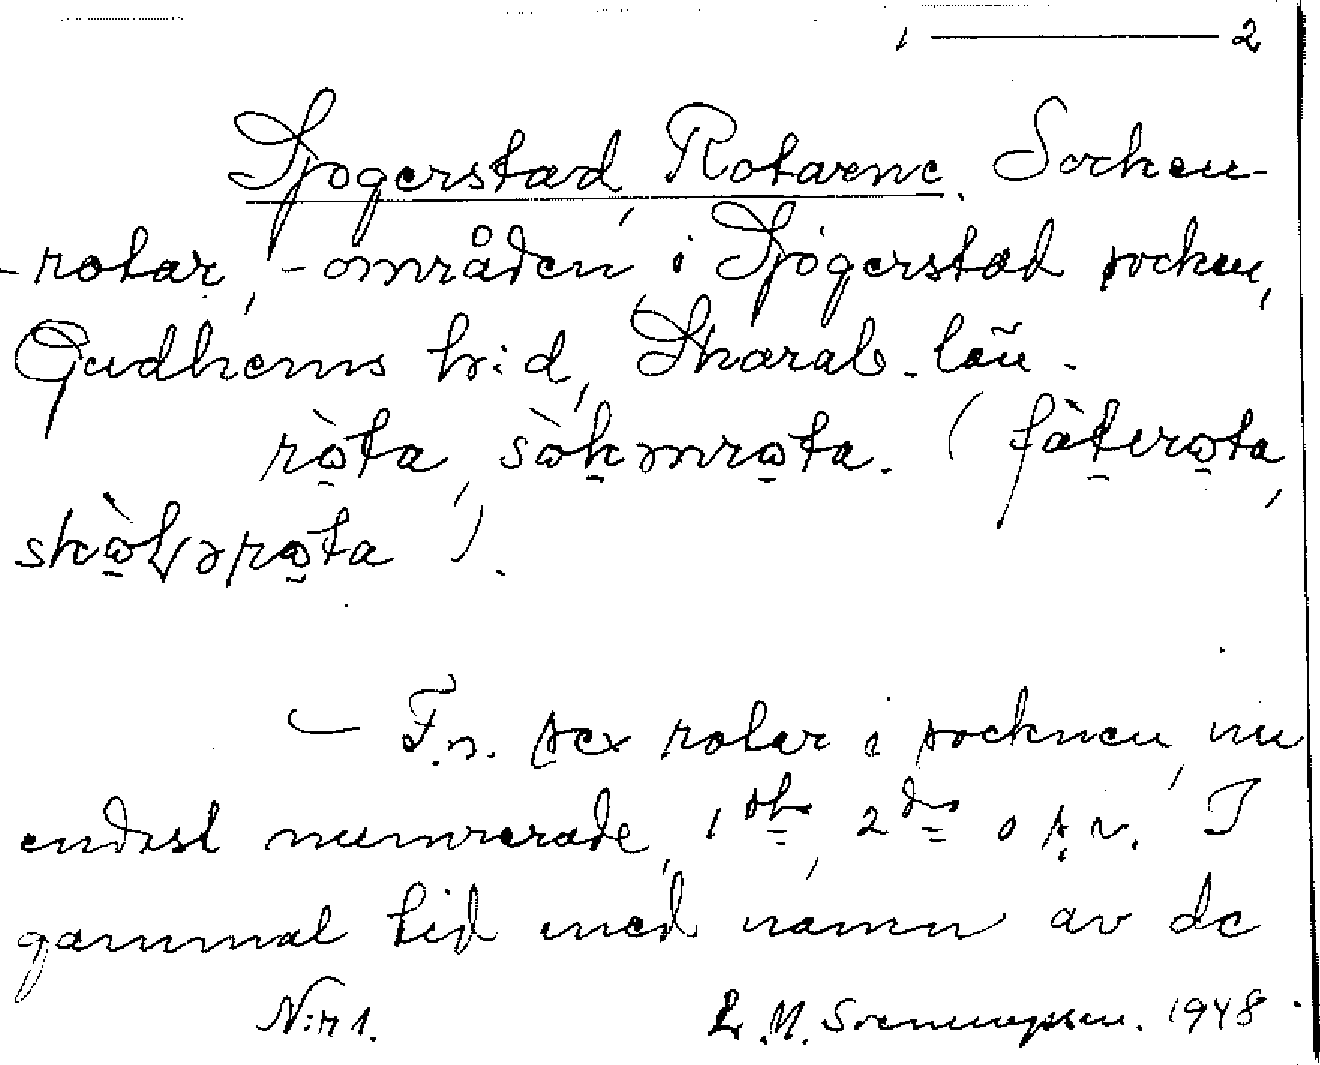 1 ——— 2
Sjogerstad, Rotarne. Socken-
-rotar, -områden, i Sjögerstad socken,
Gudhems h:d, Skarab. län.
ròta, sòkənrota. (fàterota,
)
— F.n. sex rotar i socknen, nu
endast numrerade, 1sta, 2dra o.s.v. I
gammal tid med namn av de
N:r 1. L.M. Svennungsson. 1948.